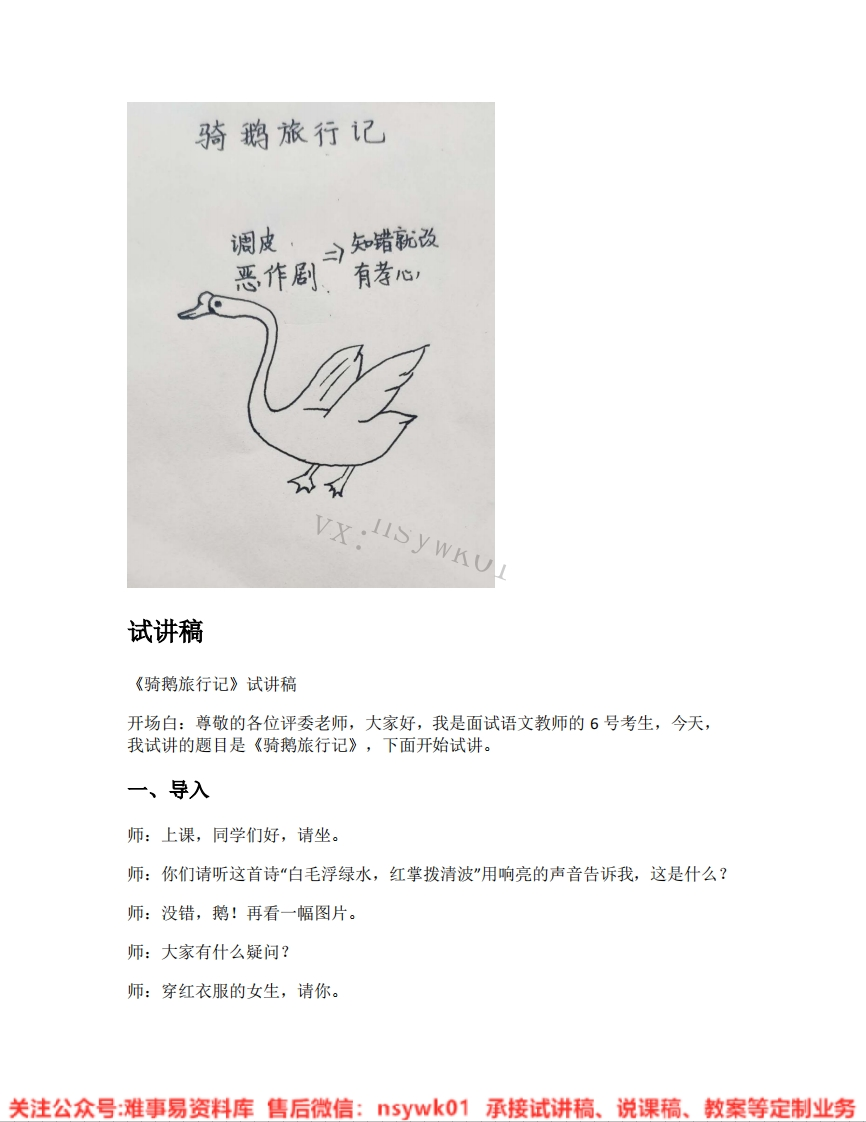 骑鹅旅行记
调皮 ⇒ 知错就改
恶作剧 有孝心
VX:nsywk01
试讲稿
《骑鹅旅行记》试讲稿
开场白：尊敬的各位评委老师，大家好，我是面试语文教师的 6 号考生，今天，
我试讲的题目是《骑鹅旅行记》，下面开始试讲。
一、导入
师：上课，同学们好，请坐。
师：你们请听这首诗“白毛浮绿水，红掌拨清波”用响亮的声音告诉我，这是什么？
师：没错，鹅！再看一幅图片。
师：大家有什么疑问？
师：穿红衣服的女生，请你。
关注公众号:难事易资料库 售后微信：nsywk01 承接试讲稿、说课稿、教案等定制业务